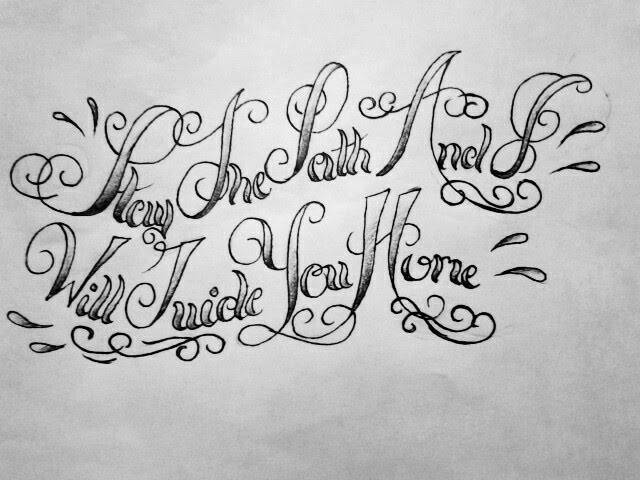 Stay The Path And I
Will Guide You Home